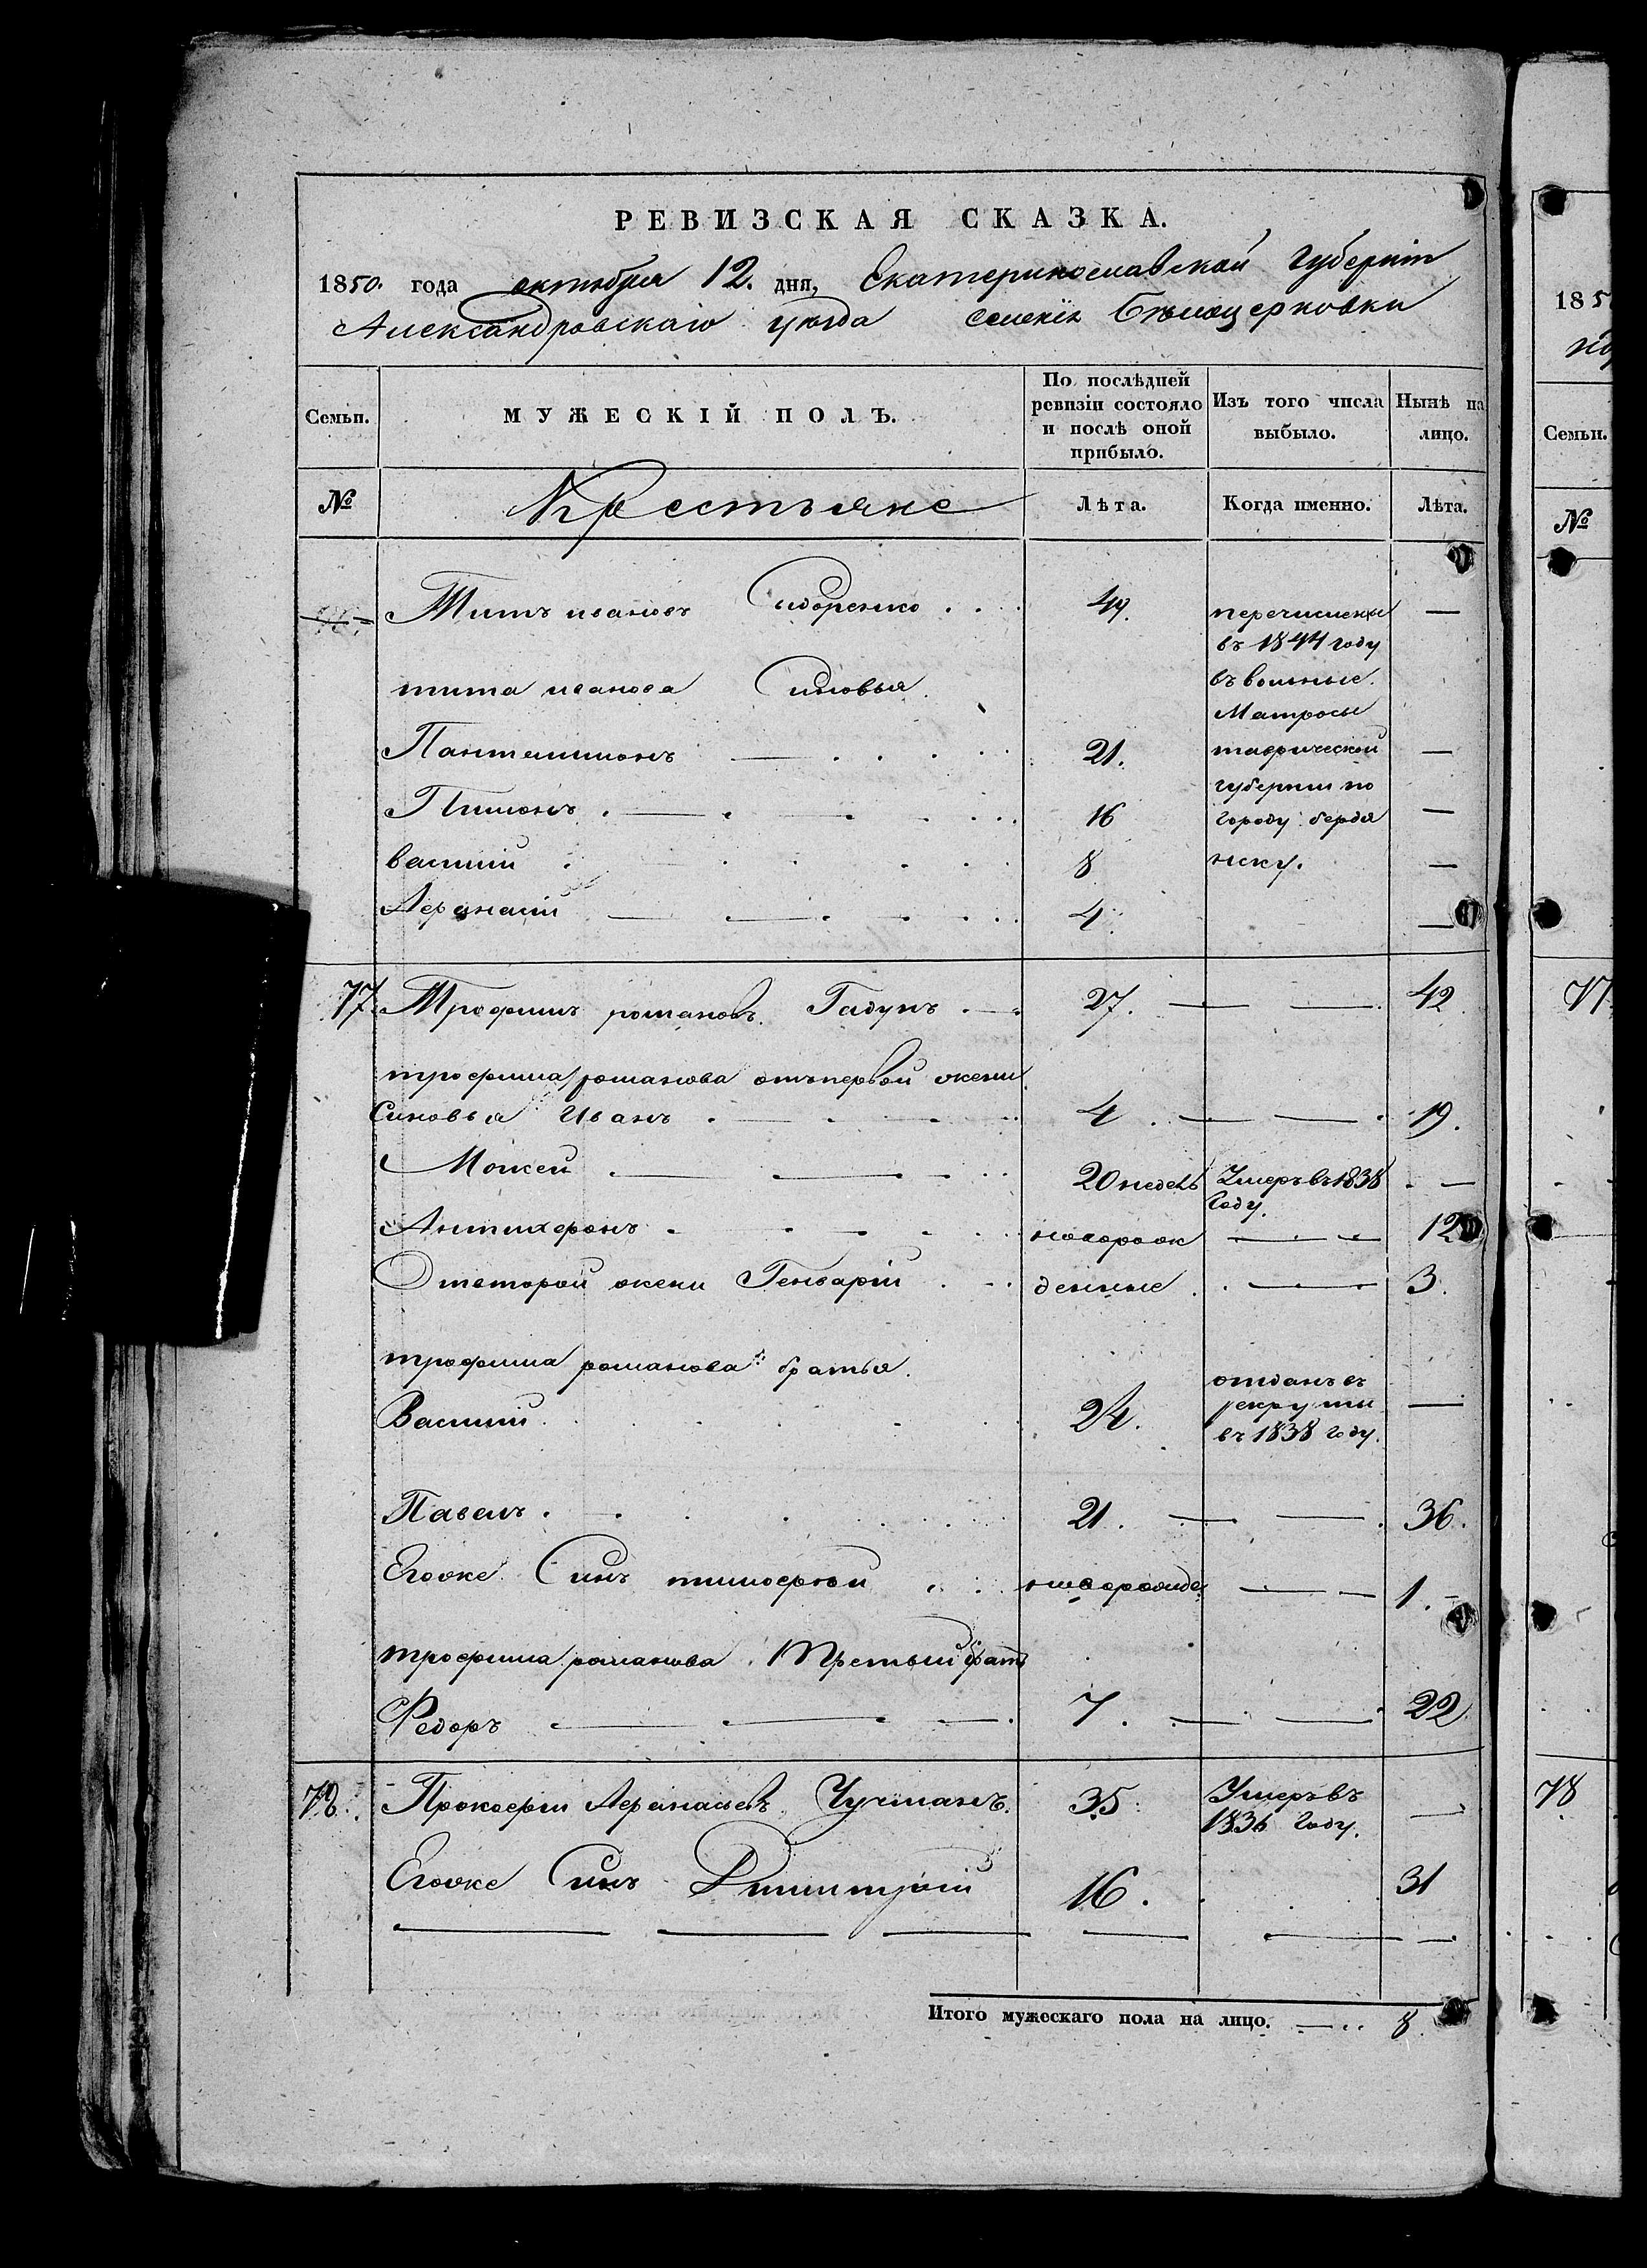 РЕВИЗСКАЯ СКАЗКА.
1850. года октября 12. дня, Екатеринославской Губерніи
Александровскаго уѣзда Селенія Бѣлоцерковки
Семьи.
МУЖЕСКІЙ ПОЛЪ.
По послѣдней ревизіи состояло и послѣ оной прибыло.
Изъ того числа выбыло.
Нынѣ на лицо.
№
Крестьяне
Лѣта.
Когда именно.
Лѣта.
76. Титъ ивановъ Сидоренко 49. перечислены —
въ 1844 году
тита иванова Синовья. въ вольные.
Матросы
Пантелимонъ 21. таврической —
губернии по
Пимонъ 16 городу бердя —
василий 8 нску. —
Афанасій 4. —
77. Трофимъ романовъ. Гадунъ 27. — 42
трофима романова отъ первой жены
Синовья Иванъ 4. — 19.
Моисей 20 недель Умеръ въ 1838 —
Году.
Антихфонъ новорож — 12
Отвторой жены Генварій денные — 3.
трофима романова братья.
Василий 24. отданъ въ —
рекруты
въ 1838 году.
Павелъ 21. — 36.
Егоже Синъ тимофѣй новорожде — 1.
трофима романова Третьий братъ
Федоръ 7. — 22.
78. Прокофіи Афанасьевъ Чучманъ. 35 Умеръ въ —
1836 Году.
Егоже Синъ Димитрій 16. 31
Итого мужескаго пола на лицо. 8.
185
Семьи.
№
77
78